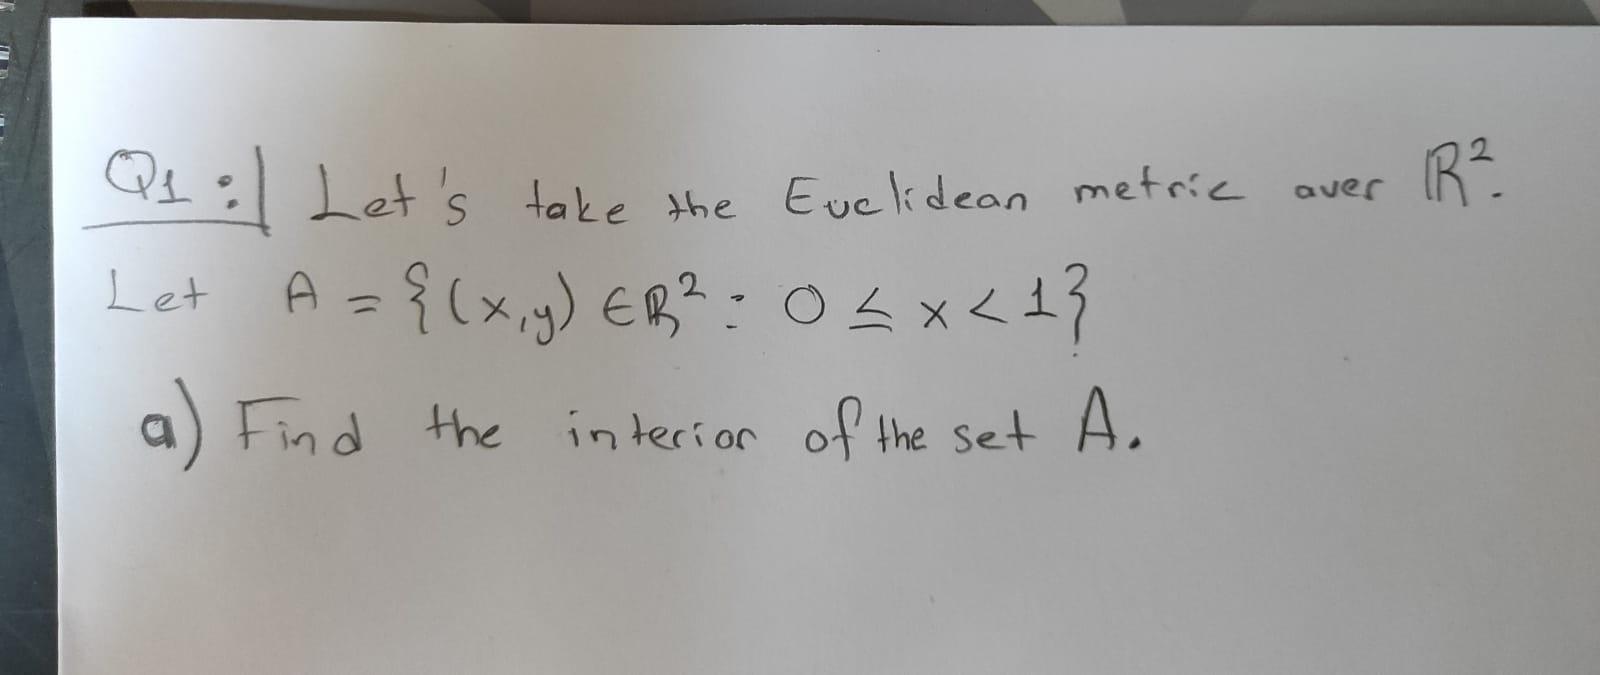 Q1:| Let's take the Euclidean metric over ℝ².
Let A = {(x,y) ∈ ℝ² : 0 ≤ x < 1}
a) Find the interior of the set A.